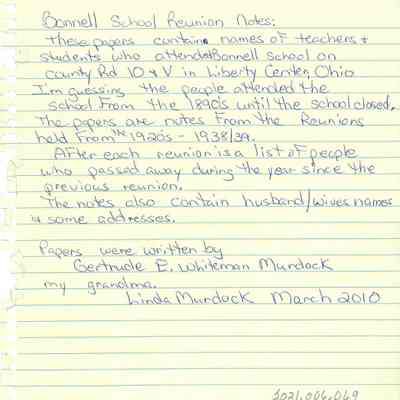 Bonnell School Reunion Notes:
These papers contain names of teachers +
students who attended Bonnell School on
county Rd 10 & V in Liberty Center, Ohio
I'm guessing the people attended the
school from the 1890's until the school closed.
The papers are notes from the Reunions
held from the 1920's - 1938/39.
After each reunion is a list of people
who passed away during the year since the
previous reunion.
The notes also contain husband/wives names
& some addresses.
Papers were written by
Gertrude E. Whiteman Murdock
my grandma.
Linda Murdock March 2010
2021.006.069